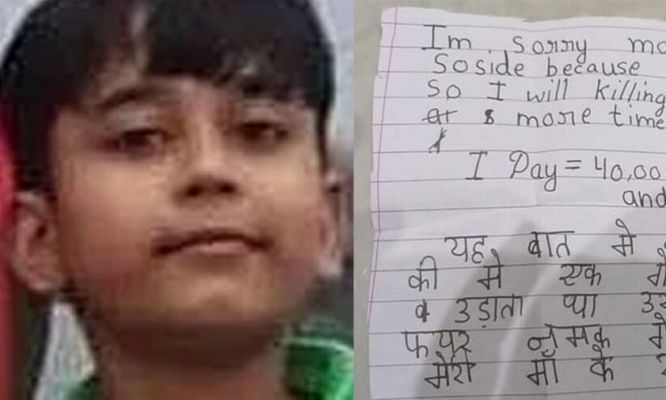 Im sorry
Soside because
So I will killing
more time
I Pay = 40,00
and
यह बात मे
की मे एक
उड़ाता था
फायर नमक
मेरी माँ के